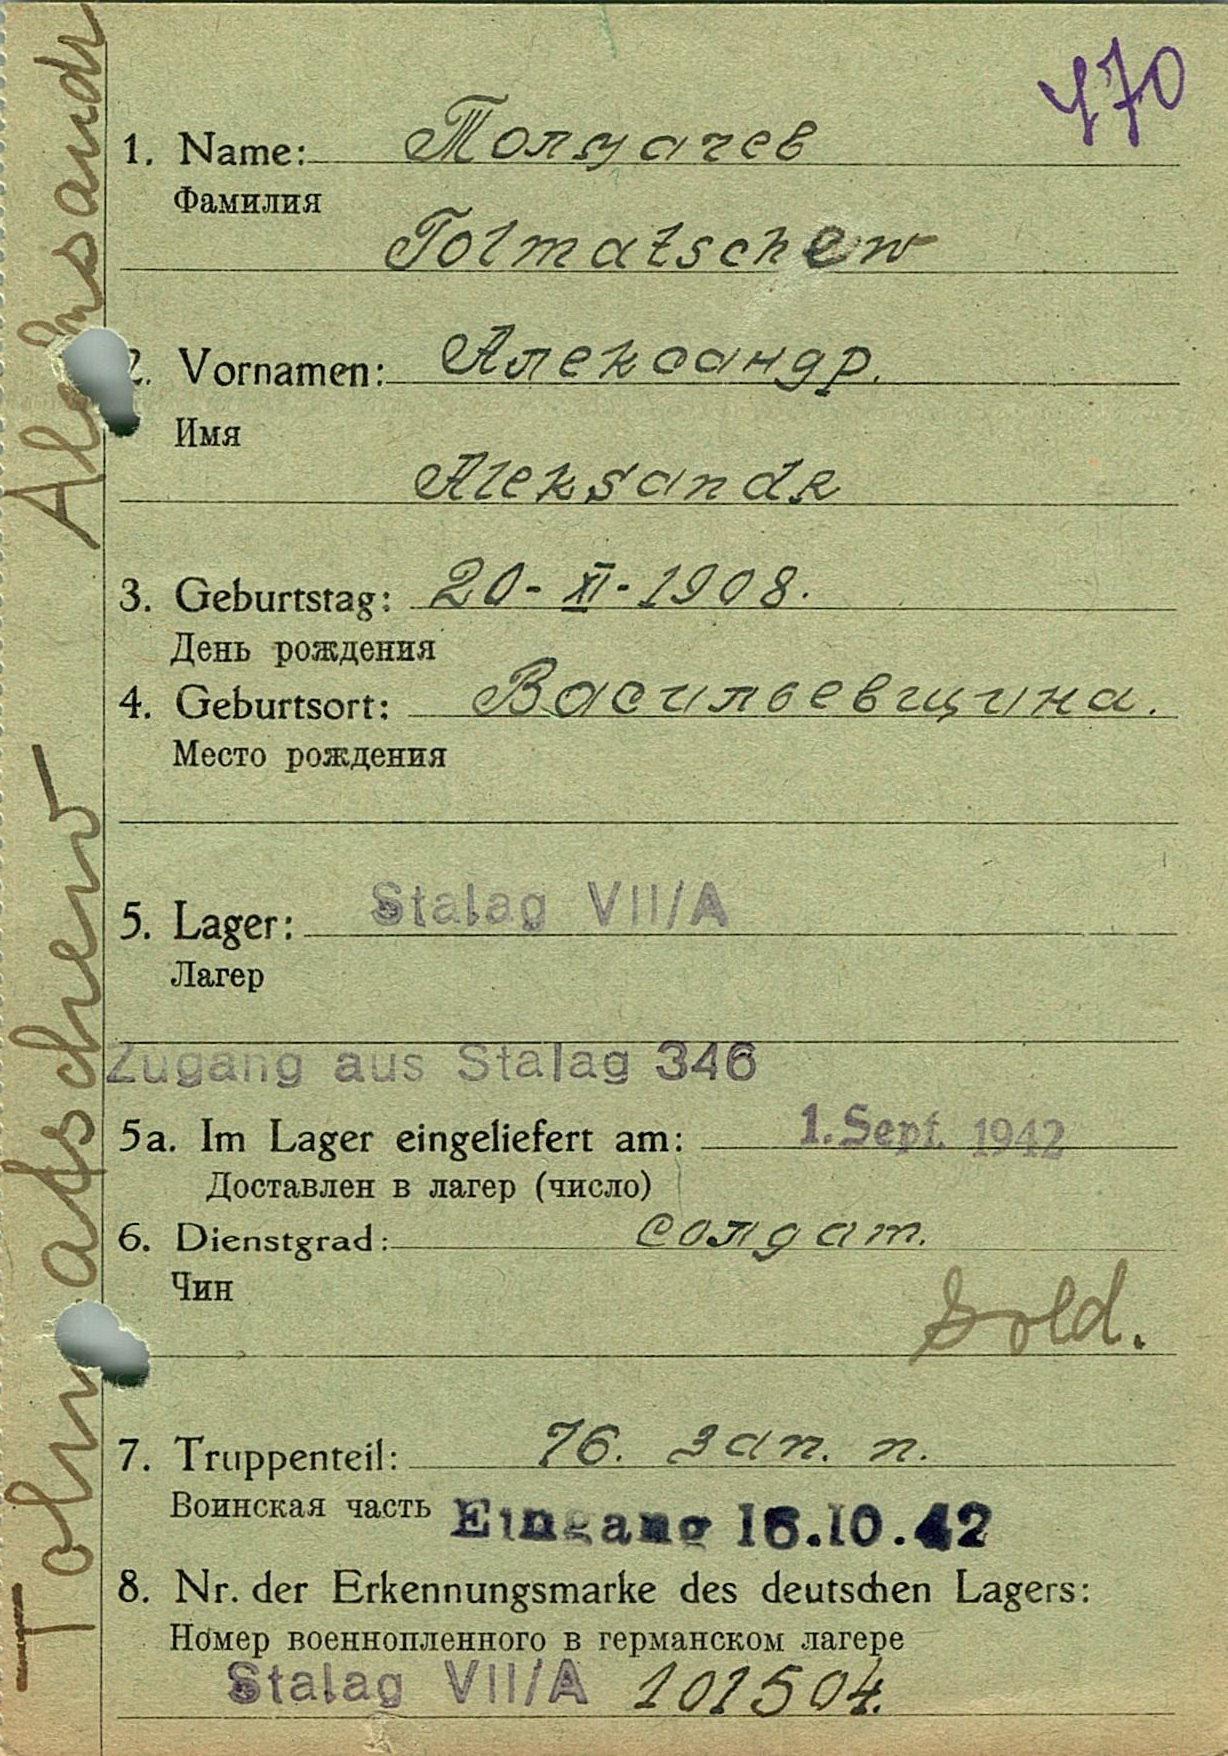 470
1. Name: Толмачев
Фамилия
Tolmatschew
2. Vornamen: Александр.
Имя
Aleksandr
3. Geburtstag: 20-XI-1908.
День рождения
4. Geburtsort: Васильевщина.
Место рождения
5. Lager: Stalag VII/A
Лагер
Zugang aus Stalag 346
5a. Im Lager eingeliefert am: 1. Sept. 1942
Доставлен в лагер (число)
6. Dienstgrad: солдат.
Чин
Sold.
7. Truppenteil: 76. зап. п.
Воинская часть Eingang 16.10.42
8. Nr. der Erkennungsmarke des deutschen Lagers:
Номер военнопленного в германском лагере
Stalag VII/A 101504.
Tolmatschew Aleksandr